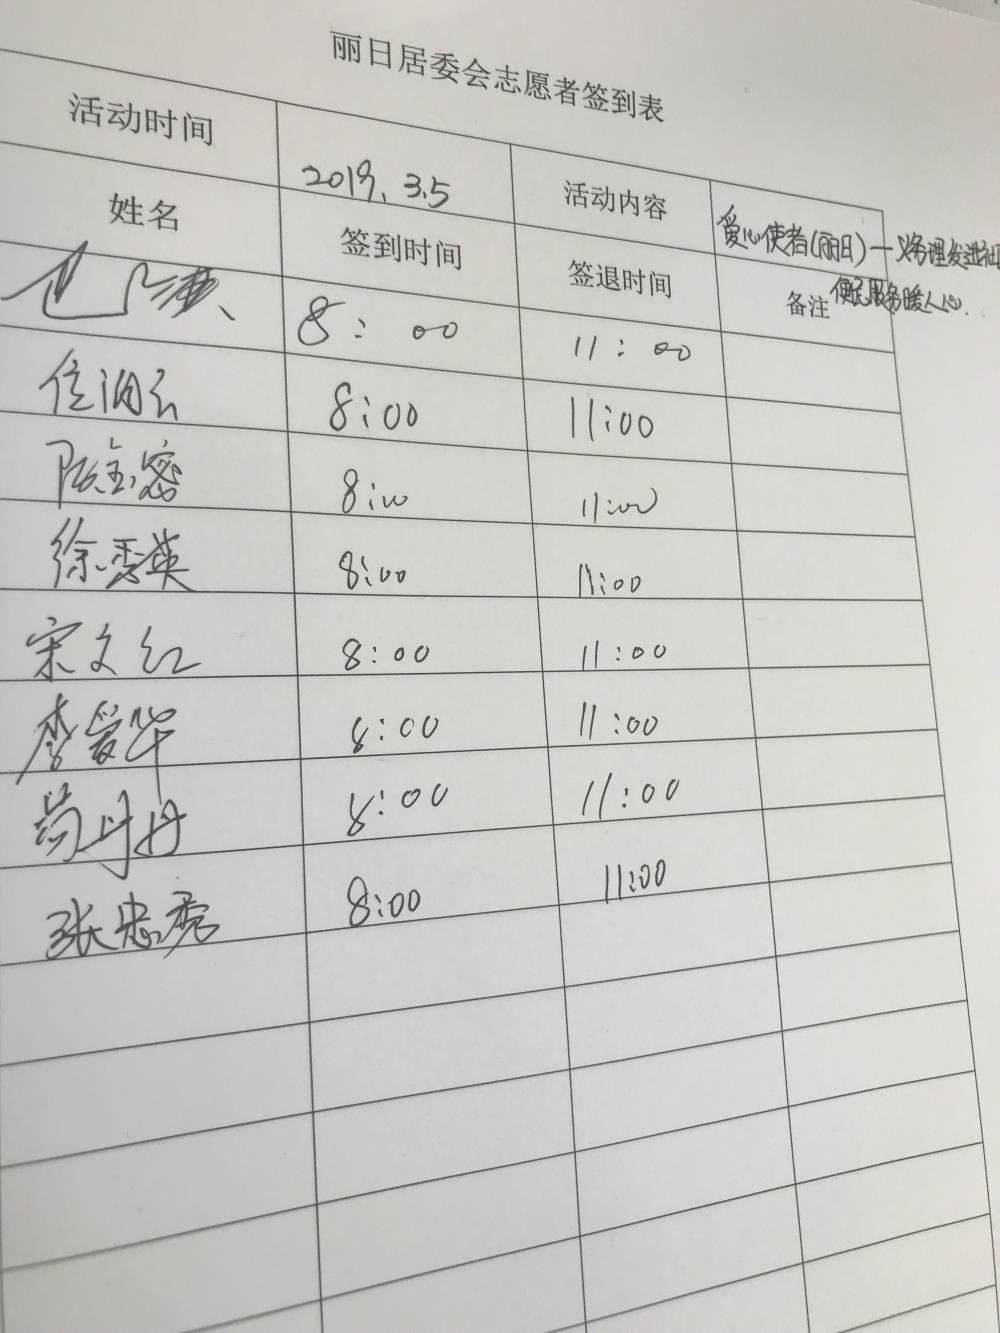 丽日居委会志愿者签到表
活动时间 2019.3.5 活动内容 爱心使者(丽日)一义务理发进社区
便民服务暖人心.
姓名 签到时间 签退时间 备注
8:00 11:00
8:00 11:00
8:00 11:00
徐秀英 8:00 11:00
宋文红 8:00 11:00
李爱华 8:00 11:00
尚丹丹 8:00 11:00
张忠秀 8:00 11:00